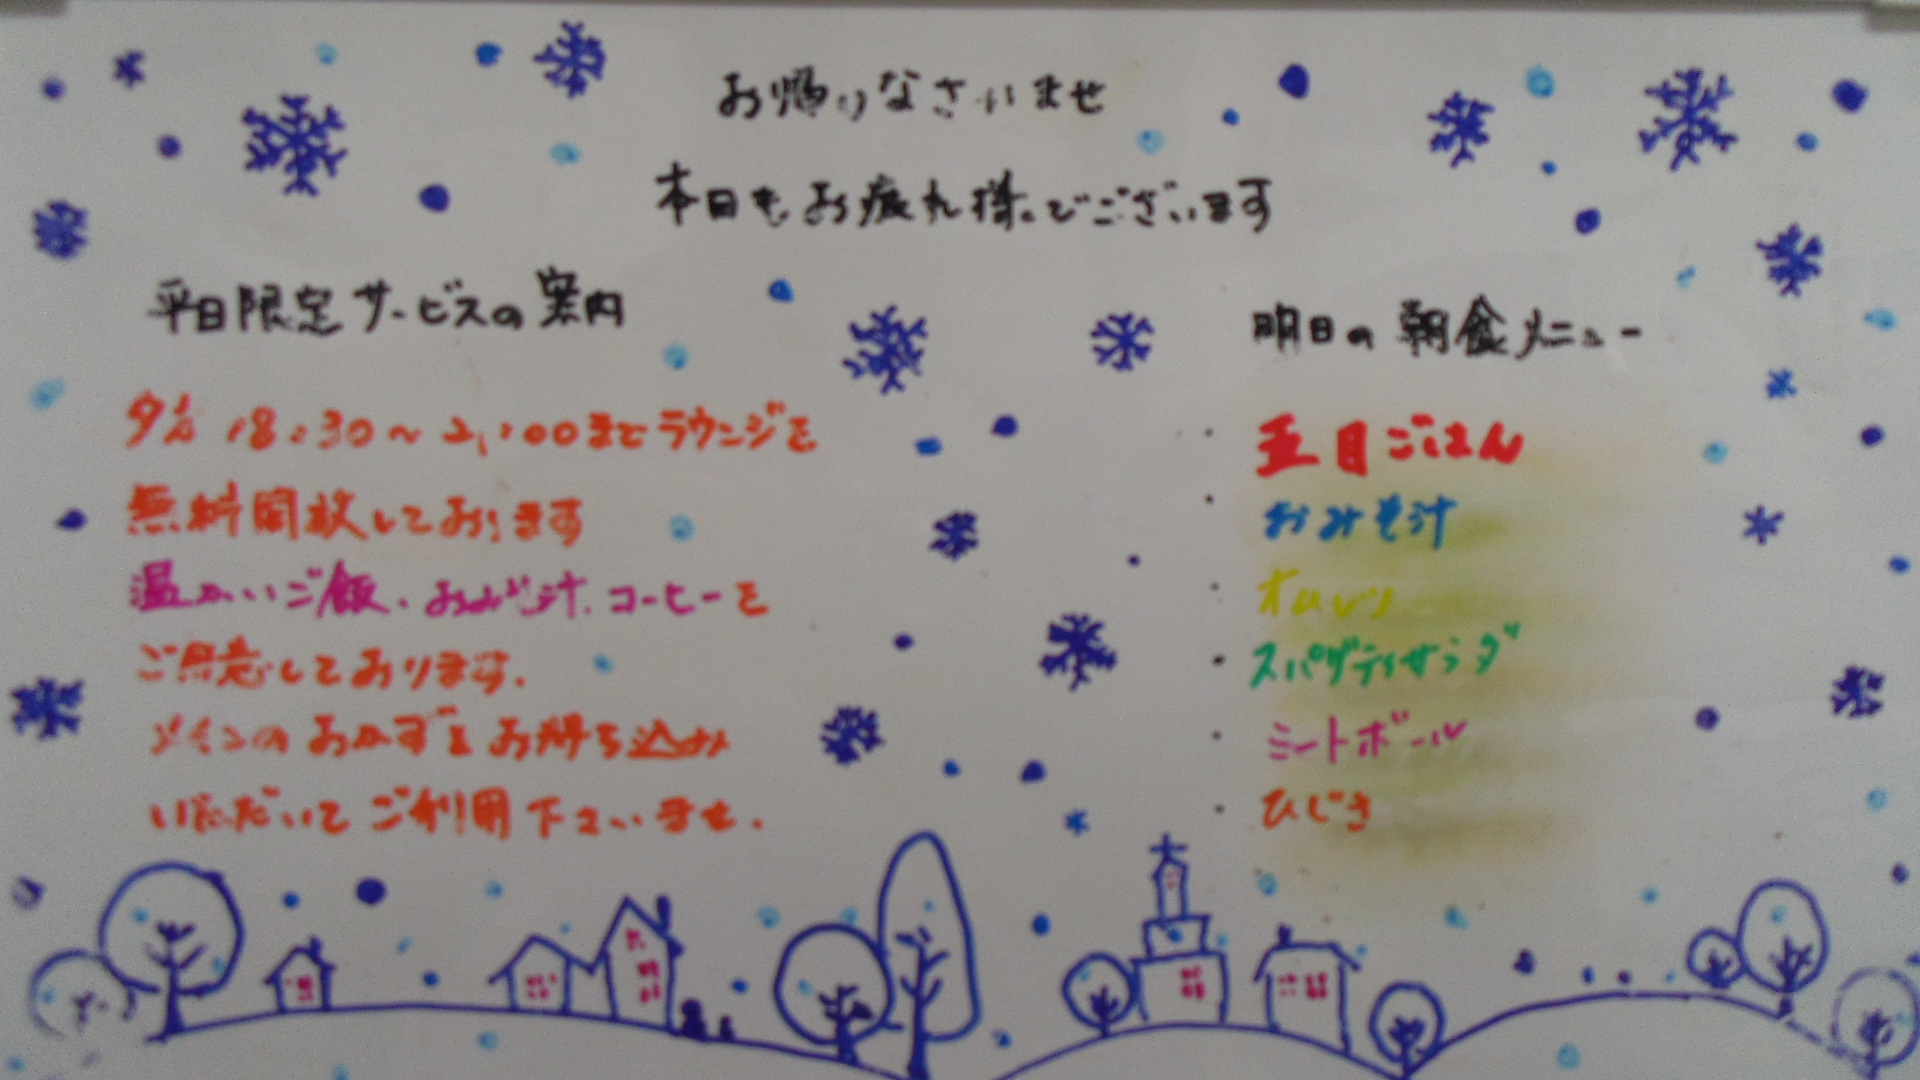 お帰りなさいませ
本日もお疲れ様でございます
平日限定サービスの案内
夕方 18:30～21:00までラウンジを
無料開放しております
温かいご飯、おみそ汁、コーヒーを
ご用意しております。
メインのおかずをお持ち込み
いただいてご利用下さいませ。
明日の朝食メニュー
・五目ごはん
・おみそ汁
・オムレツ
・スパゲティサラダ
・ミートボール
・ひじき